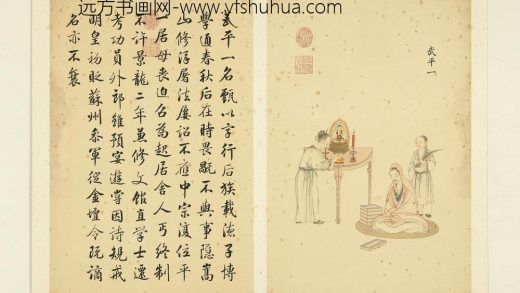 远方书画网-www.yfshuhua.com
武平一
武平一名甄以字行后族載德子博
學通春秋后在時畏禍不與事隱嵩
山修浮屠法屢詔不應中宗復位平
一居母喪迫召為起居舍人丐終制
不許景龍二年兼修文館直學士遷
考功員外郎雖預宴遊嘗因詩規戒
明皇初貶蘇州參軍徙金壇令既謫
名亦不衰